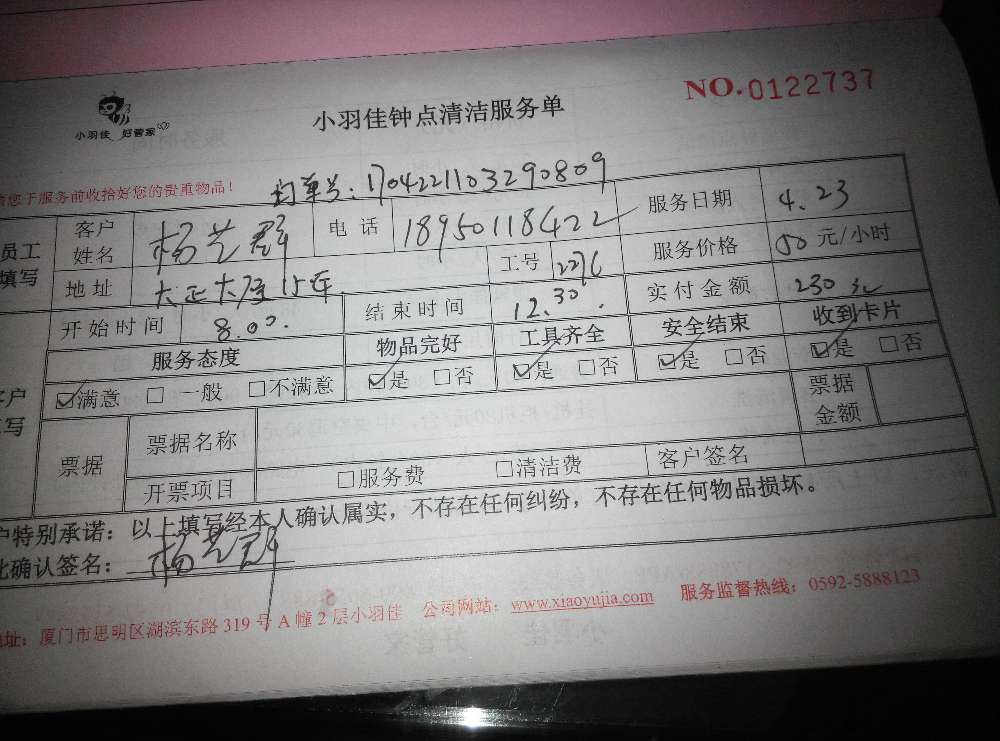 小羽佳 好管家
小羽佳钟点清洁服务单
NO.0122737
您于服务前收拾好您的贵重物品！
订单号：1704221103290809
员工填写
客户姓名 杨艺群 电话 18950118422 服务日期 4.23
地址 工号 2276 服务价格 50元/小时
开始时间 8.00. 结束时间 12.30. 实付金额 230元
服务态度 物品完好 工具齐全 安全结束 收到卡片
☑满意 □一般 □不满意 ☑是 □否 ☑是 □否 ☑是 □否 ☑是 □否
票据 票据名称 票据金额
开票项目 □服务费 □清洁费 客户签名
户特别承诺：以上填写经本人确认属实，不存在任何纠纷，不存在任何物品损坏。
此确认签名：杨艺群
地址：厦门市思明区湖滨东路319号A幢2层小羽佳 公司网站：www.xiaoyujia.com 服务监督热线：0592-5888123